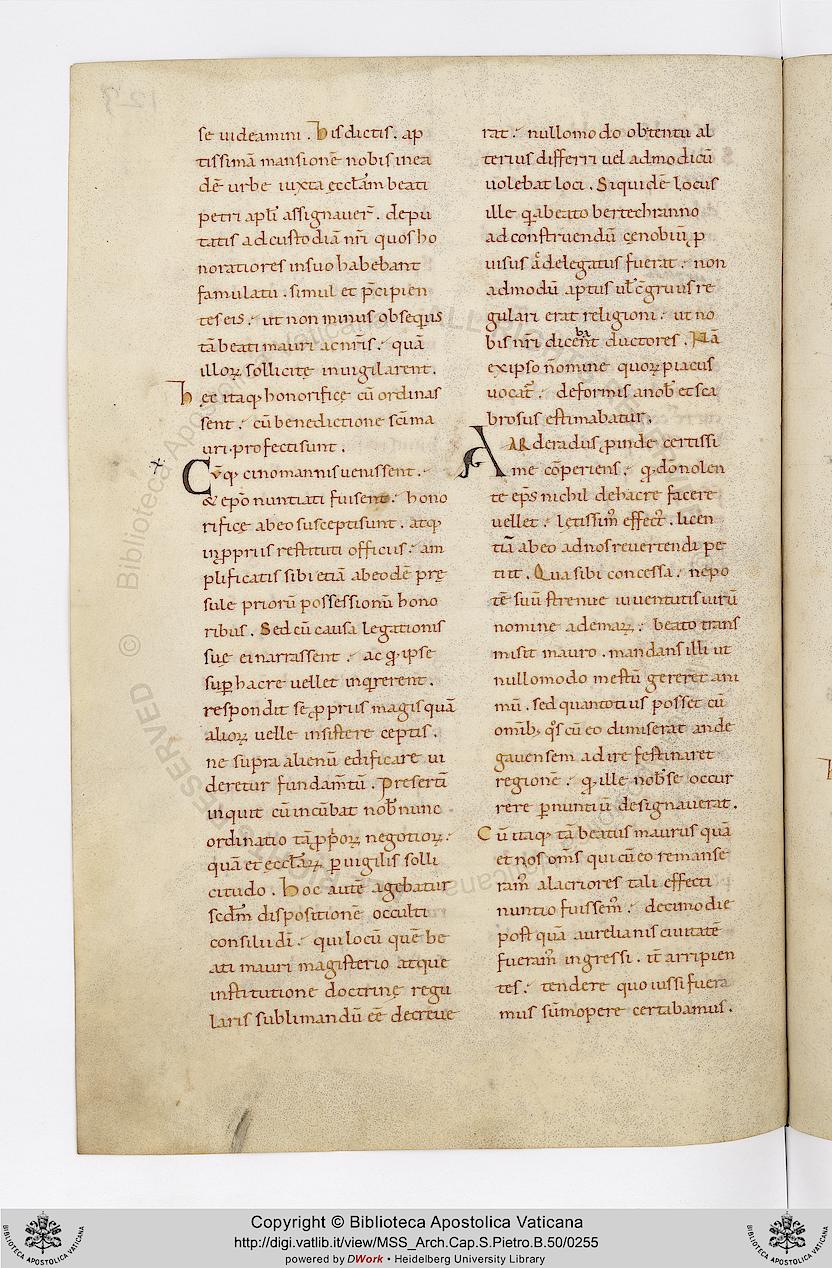 se uideamini. His dictis. ap
tissimā mansionē nobis in ea
dē urbe iuxta ęcclãm beati
petri apli assignauer̄. depu
tatis ad custodiā nr̄i quos ho
noratiores in suo habebant
famulatu. simul et p̄cipien
tes eis. ut non minus obsequiis
tā beati mauri ac nr̄is. quā
illoꝝ sollicite inuigilarent.
hęc itaq; honorifice cū ordinas
sent. cū benedictione sc̄i ma
uri profecti sunt.
Cūq; cinomannis uenissent.
& ep̄o nuntiati fuissent. hono
rifice ab eo suscepti sunt. atq;
in ꝓpriis restituti officiis. am
plificatis sibi etiā ab eodē prę
sule priorū possessionū hono
ribus. Sed cū causā legationis
suę ei narrassent. ac qd ipse
suꝑ hac re uellet inqrerent.
respondit se ꝓpriis magis quā
alioꝝ uelle insistere ceptis.
ne supra alienū edificare ui
deretur fundam̄tū. Presertī
inquit cū incūbat nob̄ nunc
ordinatio tā ꝓprioꝝ negotioꝝ.
quā et ęcclãꝝ ꝑuigilis solli
citudo. Hoc autē agebatur
scd̄m dispositionē occulti
consilii dī. qui locū quē be
ati mauri magisterio atque
institutione doctrinę regu
laris sublimandū eē decreue
rat. nullomodo obtentu al
terius differri uel ad modicū
uolebat loci. Siquidē locus
ille q a beato bertechranno
ad construendū cenobiū p
uisus a delegatus fuerat. non
admodū aptus ul c̄gruus re
gulari erat religioni. ut no
bis nr̄i dicebant ductores. Nā
ex ipso nomine quo rapiacus
uocat̄. deformis a nob̄ et sca
brosus estimabatur.
Arderadus ꝓinde certissi
me cōperiens. qd donolen
te ep̄s nichil de hac re facere
uellet. lętissim' effect'. licen
tiā ab eo ad nos reuertendi pe
tiit. Qua sibi concessa. nepo
tē suū strenue iuuentutis uirū
nomine ademarū. beato trans
misit mauro. mandans illi ut
nullomodo mestū gereret ani
mū. sed quantotius posset cū
omīb; qs cū eo dimiserat ande
gauensem adire festinaret
regionē. qd ille nob̄ se occur
rere ꝑ nuntiū designauerat.
Cū itaq; tā beatus maurus quā
et nos om̄s qui cū eo remanse
ram' alacriores tali effecti
nuntio fuissem'. decimo die
postquā aurelianis ciuitatē
fueram' ingressi. it̄ arripien
tes. tendere quo iussi fuera
mus sūmopere certabamus.
Copyright © Biblioteca Apostolica Vaticana
http://digi.vatlib.it/view/MSS_Arch.Cap.S.Pietro.B.50/0255
powered by DWork • Heidelberg University Library